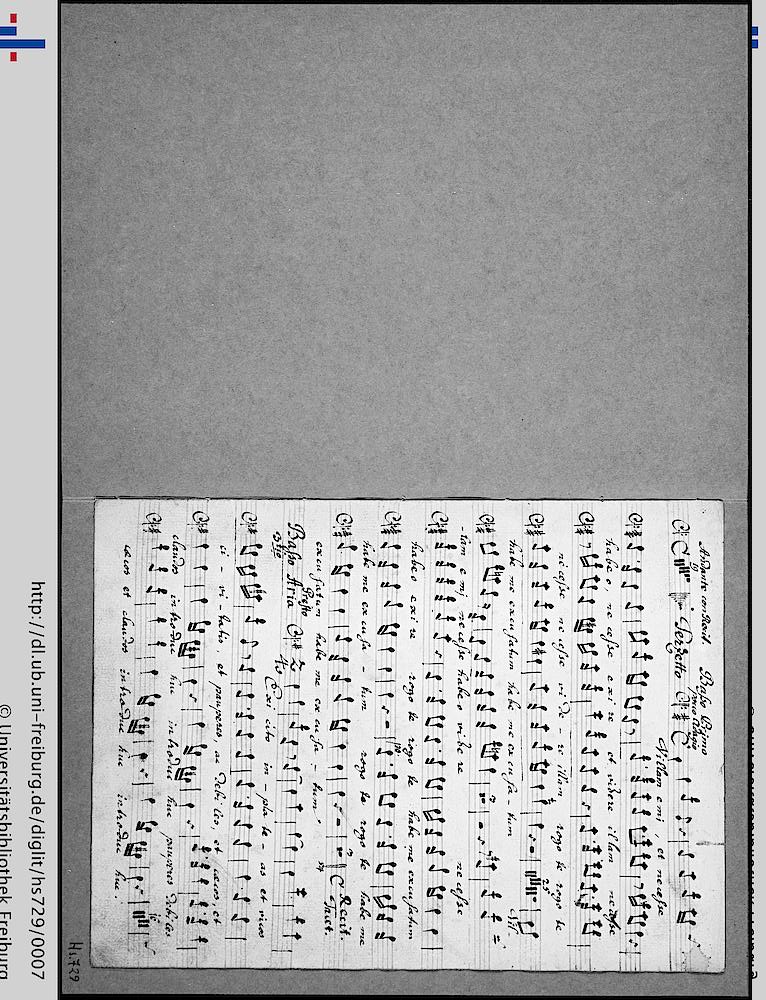 Andante con Recit. Basso Primo
Terzetto
Villam emi, et necesse
habeo, necesse exire et videre illam necesse
necesse necesse vide - re illam rogo te rogo te
habe me excusatum habe me excusa - tum
-lam emi, necesse habeo videre necesse
habeo exire rogo te rogo te habe me excusatum
habe me excusa - tum rogo te rogo te habe me
excusatum habe me excusa - tum.
Recit.
tacet.
Basso Aria Presto
Exi cito in - plate - as et vicos
ci - vi - tatis et pauperes ac debiles, et caecos, et
claudos introduc huc introduc huc pauperes debiles
caecos et claudos introduc huc introduc huc.
Hs. 729
http://dl.ub.uni-freiburg.de/diglit/hs729/0007
© Universitätsbibliothek Freiburg